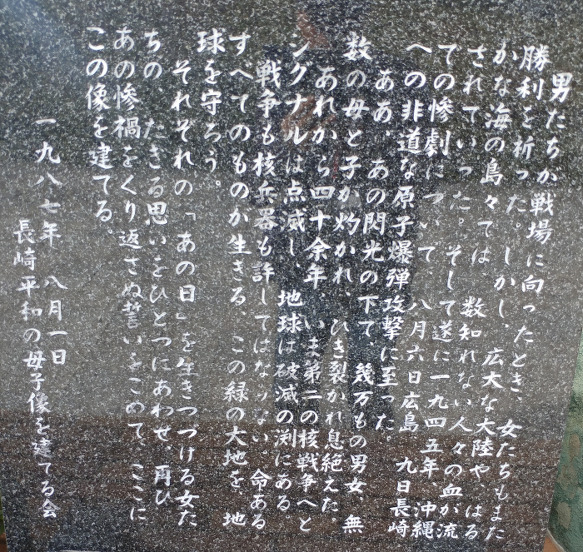 男たちが戦場に向ったとき、女たちもまた
勝利を祈った。しかし、広大な大陸や、はる
かな海の島々では、数知れない人々の血が流
されていった。そして遂に一九四五年 沖縄
での惨劇について、八月六日広島 九日長崎
への非道な原子爆弾攻撃に至った。
ああ、あの閃光の下で、幾万もの男女 無
数の母と子が灼かれ、ひき裂かれ息絶えた。
あれから四十余年、いま第二の核戦争へと
シグナルは点滅し、地球は破滅の渕にある。
戦争も核兵器も許してはならない。命ある
すべてのものが生きる、この緑の大地を、地
球を守ろう。
それぞれの「あの日」を生きつづける女た
ちの たぎる思いをひとつにあわせ、再び
あの惨禍をくり返さぬ誓いをこめて、ここに
この像を建てる。
一九八七年 八月一日
長崎平和の母子像を建てる会